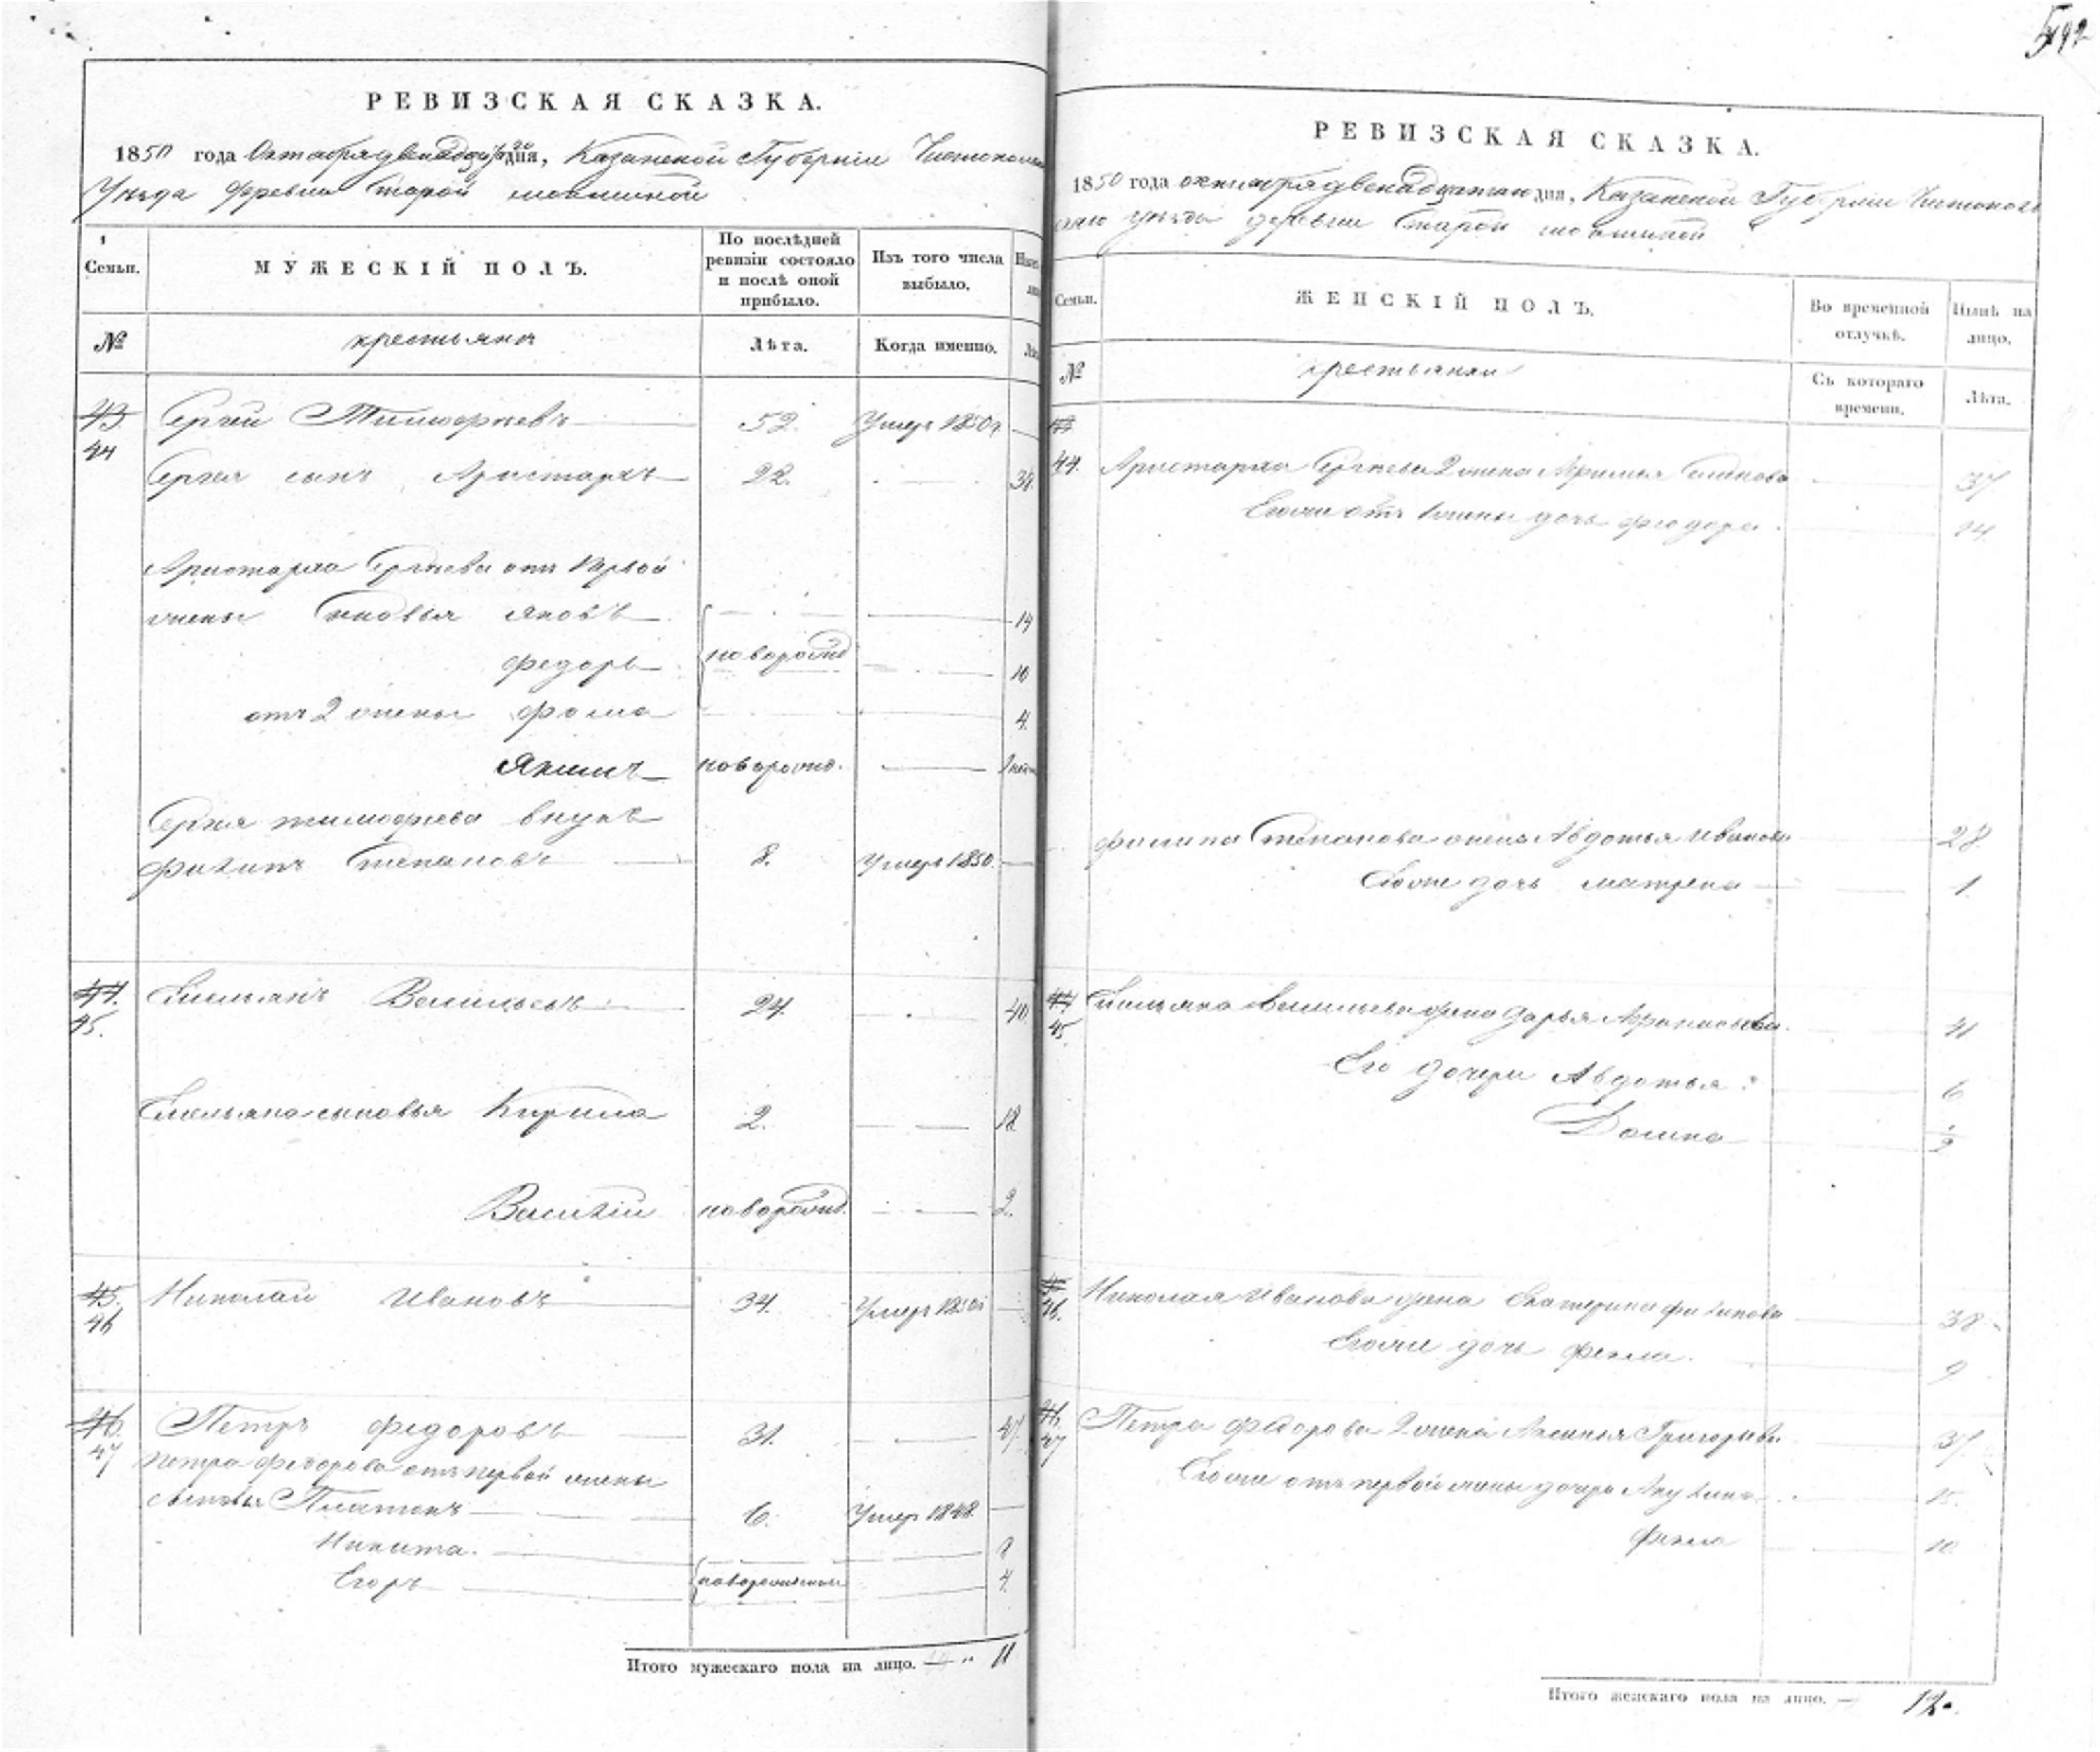 РЕВИЗСКАЯ СКАЗКА.
1850 года Октября двенадцатого дня, Казанской Губернiи
Уѣзда Деревни Старой
1
Семьи.
МУЖЕСКIЙ ПОЛЪ.
По послѣдней ревизiи состояло и послѣ оной прибыло.
Изъ того числа выбыло.
№
крестьяне
Лѣта.
Когда именно.
43
44
Сергѣй Тимофѣевъ 52. Умеръ 1850
Сергѣя сынъ Аристархъ 22. 38
Аристарха Сергѣева отъ первой
жены сыновья Яковъ 14
Федоръ новорожд 10
отъ 2 жены Фома 4.
Якимъ новорожд.
Сергѣя Тимофѣева внукъ
Филипъ Степановъ 8. Умеръ 1850.
44.
45.
Емельянъ Васильевъ 24. 40
Емельяна сыновья Кирила 2. 18
Василiй новорожд. 2.
45.
46
Николай Ивановъ 34. Умеръ 1850
46.
47
Петръ Федоровъ 31. 47
Петра Федорова отъ первой жены
сыновья Платонъ 6. Умеръ 1848.
Никита.
Егоръ новорожденные 4.
Итого мужескаго пола на лицо. 11
РЕВИЗСКАЯ СКАЗКА.
1850 года октября двенадцатаго дня, Казанской Губернiи
уѣзда деревни Старой
Семьи.
ЖЕНСКIЙ ПОЛЪ.
Во временной отлучкѣ.
Нынѣ на лицо.
№
крестьянки
Съ котораго времени.
Лѣта.
43
44.
Аристарха Сергѣева 2 жена 37
Егоже отъ 1 жены дочь Федора. 14.
Филипа Степанова жена Авдотья Иванова 28
Егоже дочь Матрена 1.
44
45.
Емельяна Васильева жена Дарья Афанасьева. 41
Его дочери Авдотья 6
Домна 1/2
45
46.
Николая Иванова жена Екатерина Филипова 38
Егоже дочь Фекла. 9
46.
47
Петра Федорова 2 жена Аксинья Григорьева 37
Егоже отъ первой жены дочери Акулина 15.
Фекла 10
Итого женскаго пола на лицо. 12.